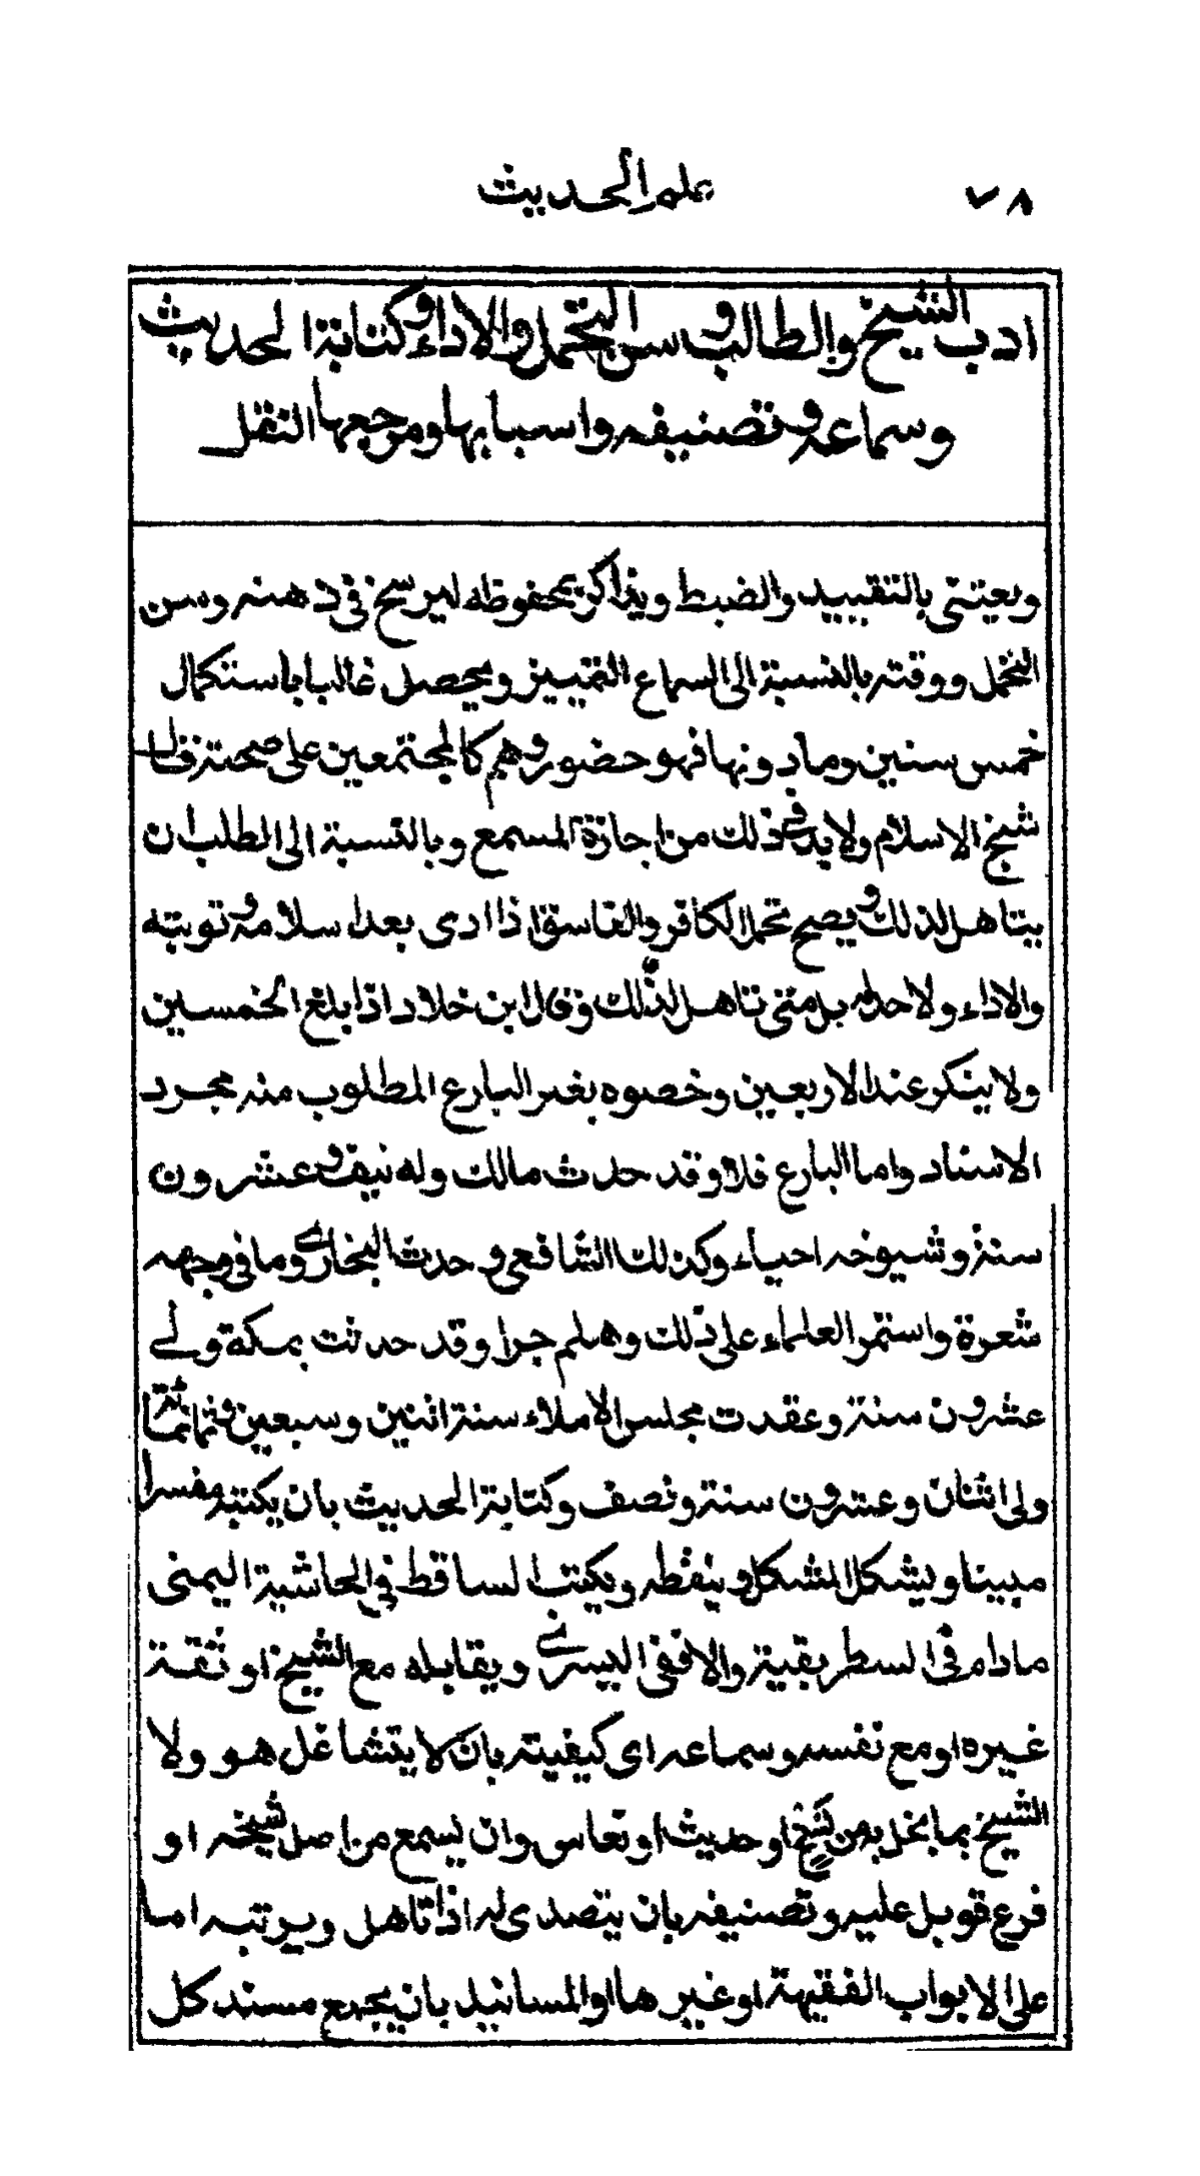 ٧٨
علم الحديث
ادب الشيخ والطالب وسن التحمل والاداء وكتابة الحديث
وسماعه وتصنيفه واسبابها ومرجعها النقل
ويعتني بالتقييد والضبط ويذاكر بمحفوظه ليرسخ في ذهنه وسن
التحمل ووقته بالنسبة الى السماع التمييز ويحصل غالبا باستكمال
خمس سنين وما دونها فهو حضور وهم كالمجتمعين على صحته قال
شيخ الاسلام ولا بد في ذلك من اجازة المسمع وبالنسبة الى الطلب ان
يتاهل لذلك ويصح تحمل الكافر والفاسق اذا ادى بعد اسلامه وتوبته
والاداء ولا حد له بل متى تاهل لذلك وقال ابن خلاد اذا بلغ الخمسين
ولا ينكر عند الاربعين وخصوه بغير البارع المطلوب منه مجرد
الاسناد واما البارع فلا وقد حدث مالك وله نيف وعشرون
سنة وشيوخه احياء وكذلك الشافعي وحدث البخاري وما في وجهه
شعرة واستمر العلماء على ذلك وهلم جرا وقد حدثت بمكة ولي
عشرون سنة وعقدت مجلس الاملاء سنة اثنين وسبعين وثمانمائة
ولي اثنان وعشرون سنة ونصف وكتابة الحديث بان يكتبه مفسرا
مبينا ويشكل المشكل وينقطه ويكتب الساقط في الحاشية اليمنى
ما دام في السطر بقية والا ففي اليسرى ويقابله مع الشيخ او ثقة
غيره او مع نفسه وسماعه اى كيفيته بان لا يتشاغل هو ولا
الشيخ بما يخل به من نسخ او حديث او نعاس وان يسمع من اصل شيخه او
فرع قوبل عليه وتصنيفه بان يتصدى له اذا تاهل ويرتبه اما
على الابواب الفقهية او غيرها او المسانيد بان يجمع مسند كل